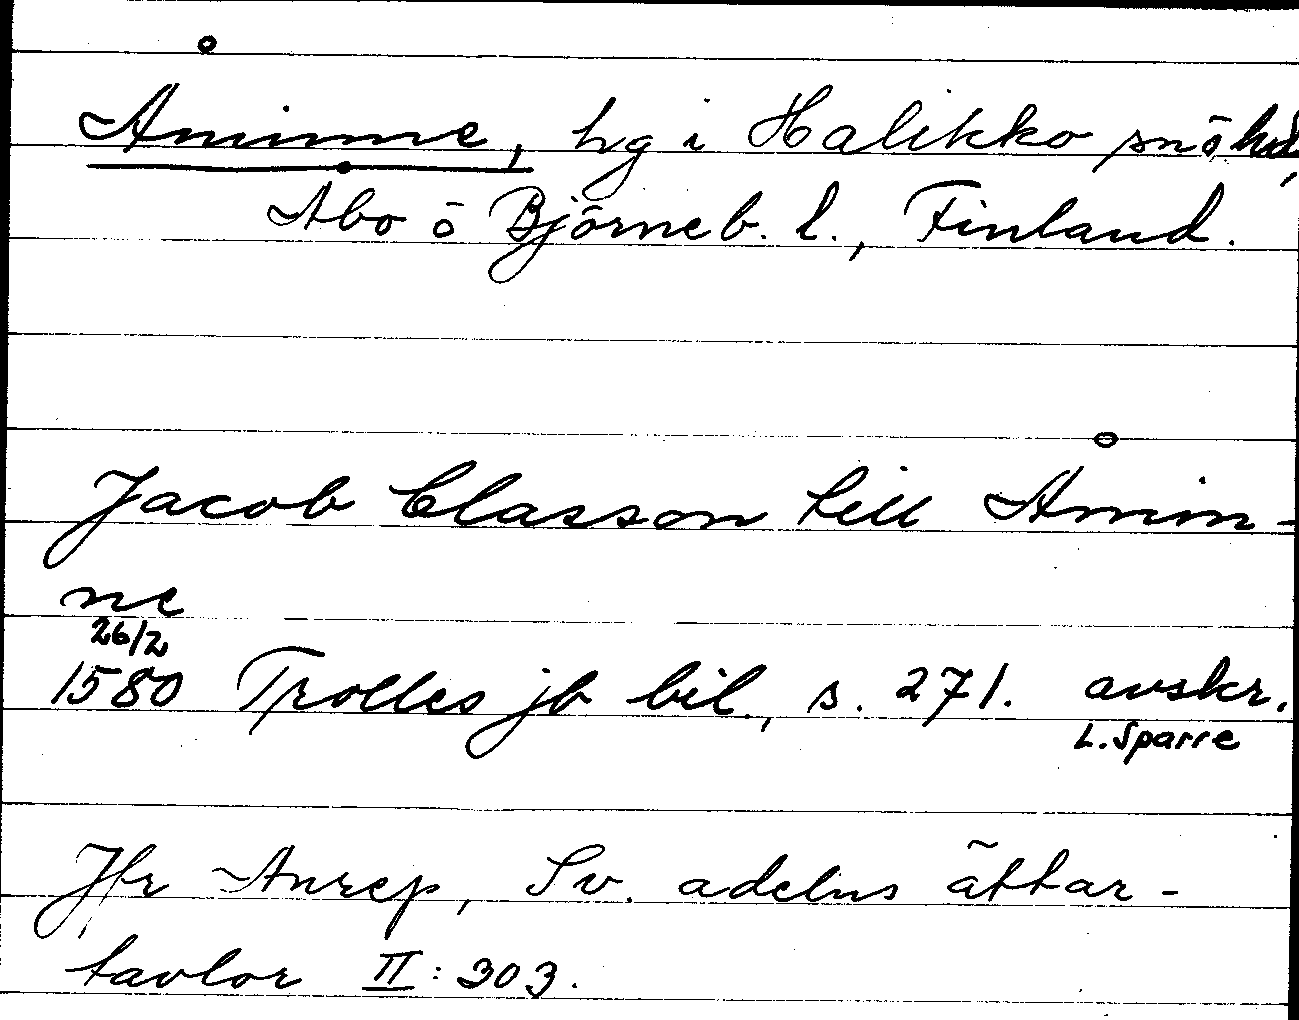 Åminne, hg i Halikko sn o hd,
Åbo o Björneb. l., Finland.
Jacob Classon till Åmin-
ne
26/2
1580 Trolles jb bil., s. 271. avskr.
L. Sparre
Jfr Anrep, Sv. adelns ättar-
tavlor II: 303.